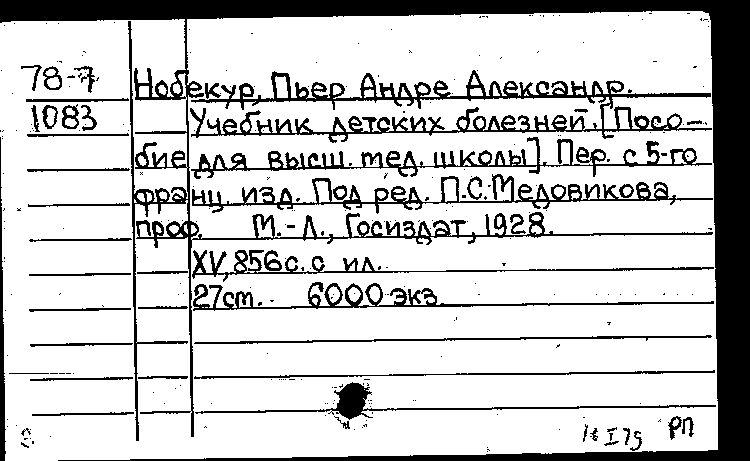 78-7 Нобекур, Пьер Андре Александр.
1083 Учебник детских болезней. [Посо-
бие для высш. мед. школы]. Пер. с 5-го
франц. изд. Под ред. П.С.Медовикова,
проф. М.-Л., Госиздат, 1928.
XV, 856 с. с ил.
27 см. 6000 экз.
I 79 РП